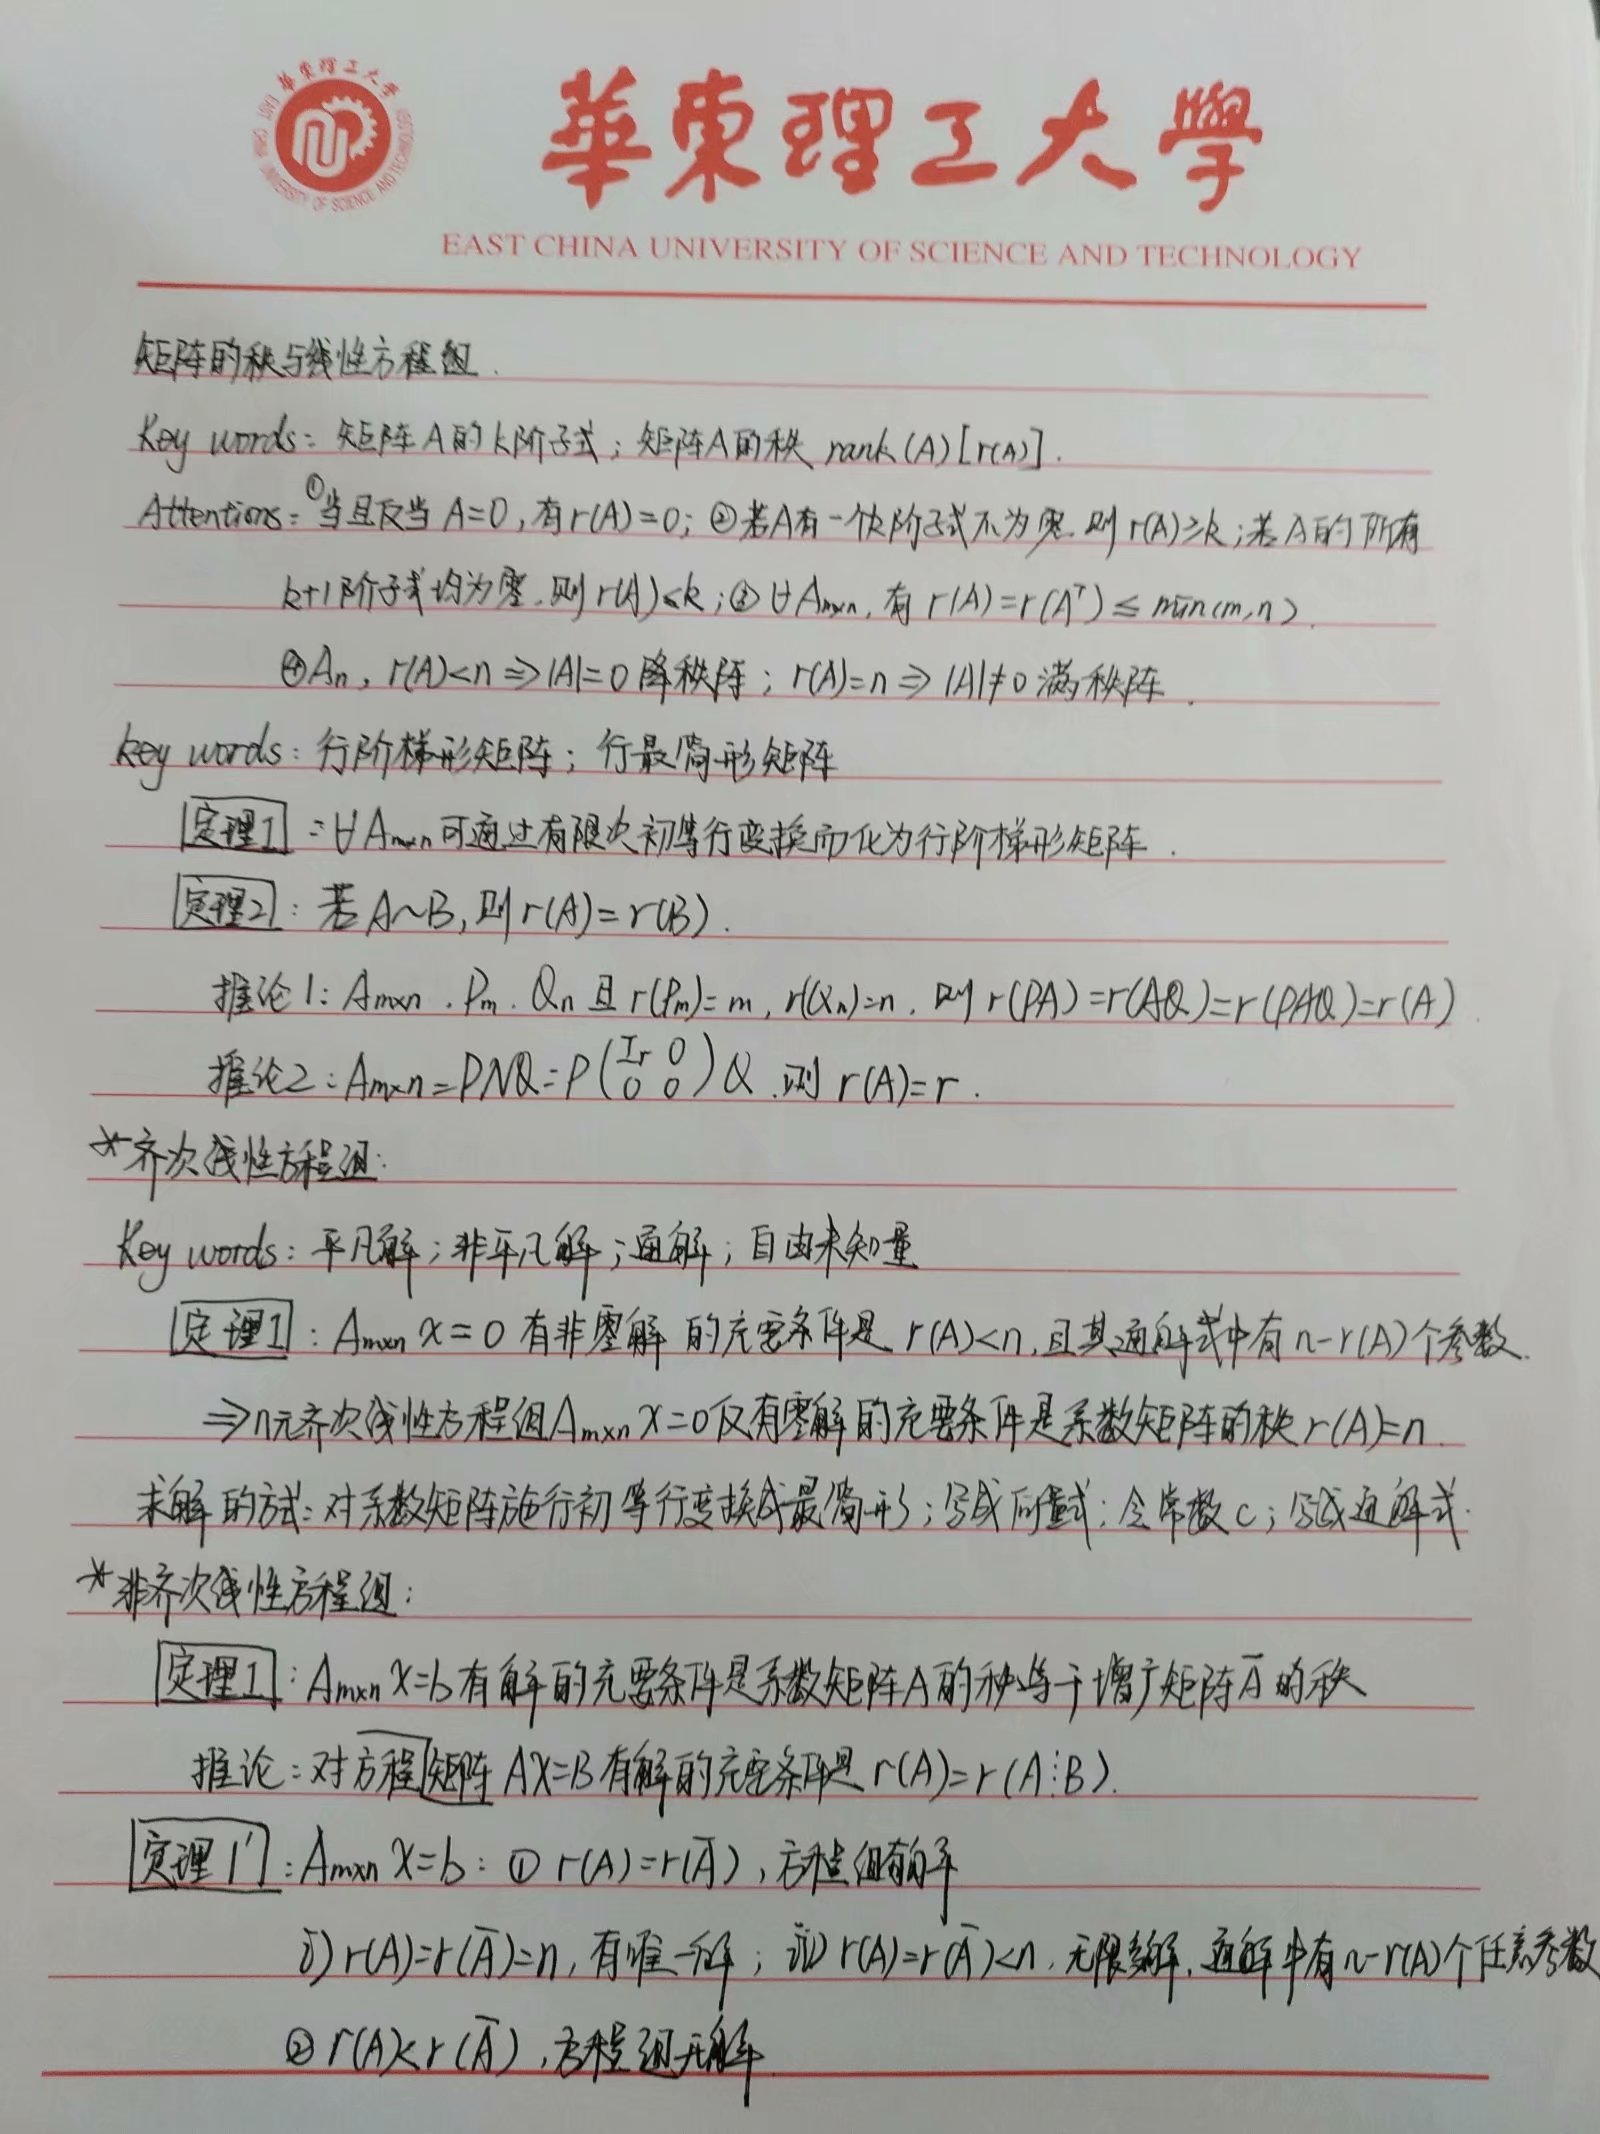 華東理工大學
EAST CHINA UNIVERSITY OF SCIENCE AND TECHNOLOGY
華東理工大學
EAST CHINA UNIVERSITY OF SCIENCE AND TECHNOLOGY
矩阵的秩与线性方程组.
Key words: 矩阵A的k阶子式; 矩阵A的秩 rank(A)[r(A)].
Attentions: ①当且仅当A=0,有r(A)=0; ②若A有一个k阶子式不为零.则r(A)≥k;若A的所有
k+1阶子式均为零.则r(A)≤k;③∀Aₘₓₙ,有r(A)=r(Aᵀ)≤min(m,n).
④Aₙ, r(A)<n⇒|A|=0降秩阵; r(A)=n⇒|A|≠0满秩阵.
key words: 行阶梯形矩阵; 行最简形矩阵
定理1: ∀Aₘₓₙ可通过有限次初等行变换而化为行阶梯形矩阵.
定理2: 若A~B,则r(A)=r(B).
推论1: Aₘₓₙ.Pₘ.Qₙ且r(Pₘ)=m, r(Qₙ)=n.则r(PA)=r(AQ)=r(PAQ)=r(A).
推论2: Aₘₓₙ=PNQ=P(Iᵣ 0 0 0)Q.则r(A)=r.
*齐次线性方程组:
Key words: 平凡解;非平凡解;通解;自由未知量
定理1: Aₘₓₙx=0有非零解的充要条件是r(A)<n,且其通解式中有n-r(A)个参数.
⇒n元齐次线性方程组Aₘₓₙx=0仅有零解的充要条件是系数矩阵的秩r(A)=n.
求解的方式: 对系数矩阵施行初等行变换成最简形;写成向量式;令常数c;写成通解式.
*非齐次线性方程组:
定理1: Aₘₓₙx=b有解的充要条件是系数矩阵A的秩等于增广矩阵Ā的秩
推论: 对方程矩阵AX=B有解的充要条件是r(A)=r(A⋮B).
定理1': Aₘₓₙx=b: ①r(A)=r(Ā),方程组有解
i) r(A)=r(Ā)=n,有唯一解; ii) r(A)=r(Ā)<n,无限多解,通解中有n-r(A)个任意参数
②r(A)<r(Ā),方程组无解.